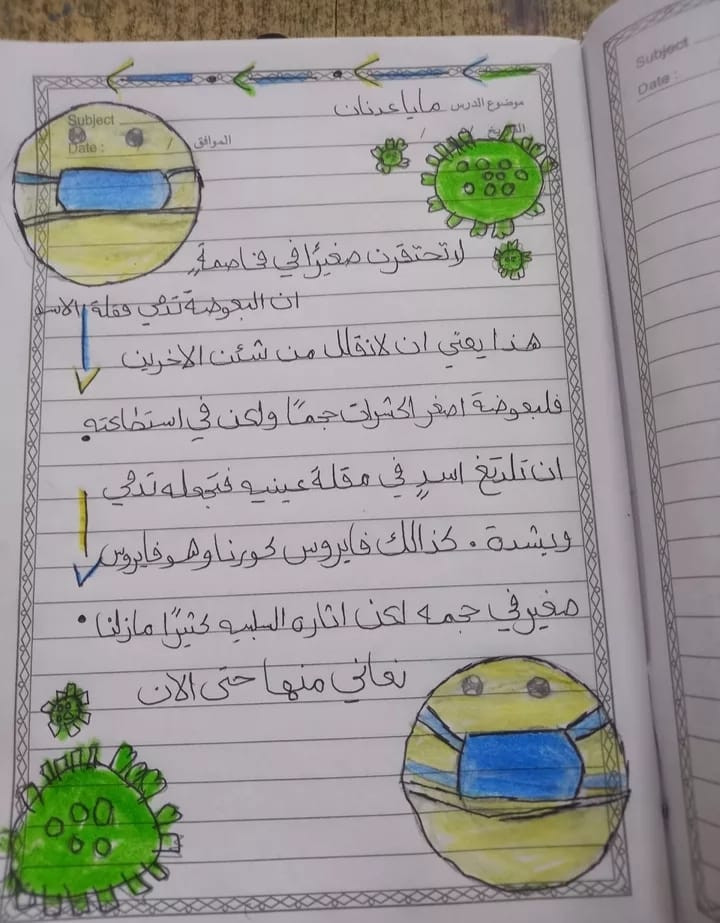 موضوع الدرس مايا عدنان
التاريخ / /
الموافق /
Subject
Date :
لا تحتقرن صغيرًا في فاصمةٍ
ان البعوضة تدمي مقلة الاسد
هذا يعني ان لا نقلل من شئن الاخرين
فلبعوضة اصغر الحشرات حجمًا ولكن في استطاعته
ان تلدغ اسدٍ في مقلة عينيه فتجعله تدمي
وبشدة . كذالك فايروس كورنا وهو فايروس
صغير في حجمه لكن اثاره السلبيه كثيرًا مازلنا
نعاني منها حتى الان
Subject
Date :